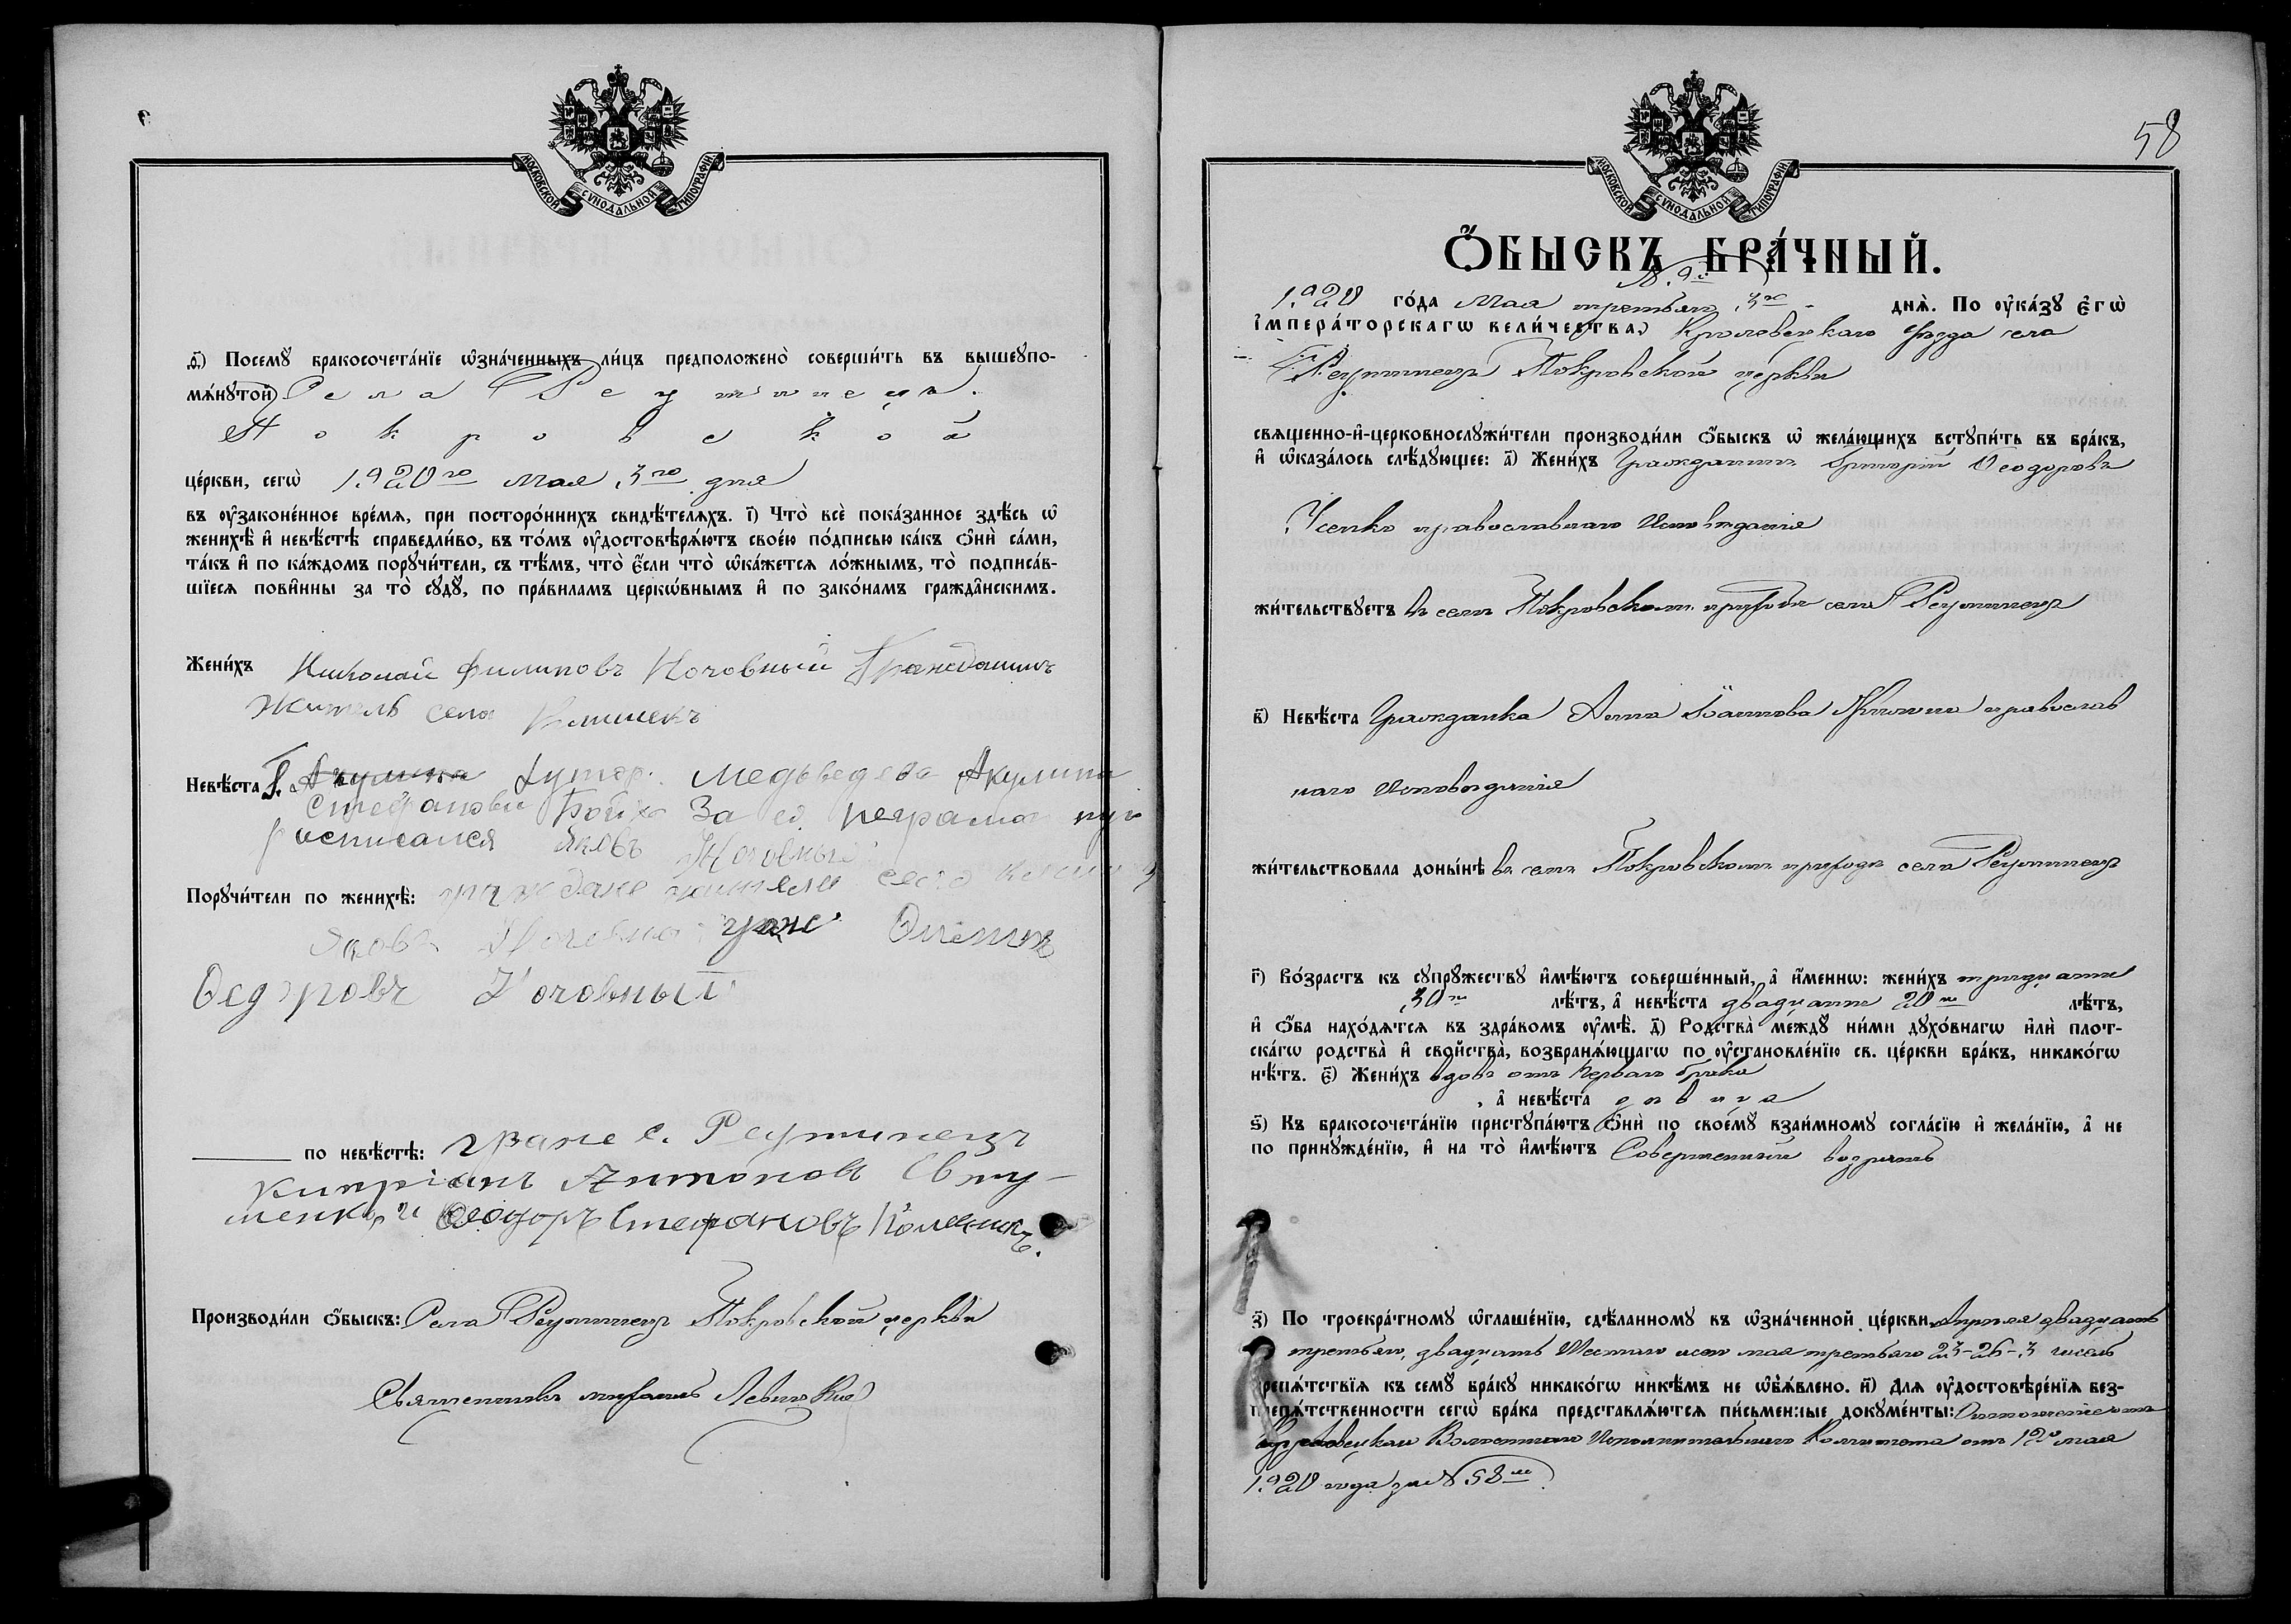 МОСКОВСКОЙ СѴНОДАЛЬНОЙ ТИПОГРАФІИ
ѳ҃) Посемꙋ̀ бракосочета́нїе ѡ҆зна́ченныхъ ли́цъ предположено̀ соверши́ть въ вышеꙋпо-
мѧ́нꙋтой Села Реутинецъ
Покровской
це́ркви, сегѡ̀ 1920го Мая 3го дня
въ оу҆законе́нное вре́мѧ, при посторо́ннихъ свидѣ́телѧхъ. і҃) Что̀ всѐ пока́занное здѣ́сь ѡ҆
женихѣ̀ и҆ невѣ́стѣ справедли́во, въ то́мъ оу҆достовѣрѧ́ютъ свое́ю по́дписью ка́къ ѻ҆нѝ са́ми,
та́къ и҆ по ка́ждомъ порꙋчи́тели, съ тѣ́мъ, что̀ є҆́сли что̀ ѡ҆ка́жетсѧ ло́жнымъ, то̀ подписа́в-
шїесѧ пови́нны за то̀ сꙋдꙋ̀, по пра́виламъ церко́внымъ и҆ по зако́намъ гражда́нскимъ.
Жени́хъ Николай Филиповъ Ночовный Гражданинъ
Житель села Клишекъ
Невѣ́ста Г. Акулина Хутор. Медьведева Акулина
Стефанови Бойко За ее неграмотную
росписался Яковъ Ночовный
Порꙋчи́тели по женихѣ̀: граждане жители села
Яковъ Ночовный граж
Ѳедоровъ Ночовный
по невѣ́стѣ: граж. с. Реутинецъ
Кипріанъ Антоновъ Евту-
шенко, и Ѳеодоръ Стефановъ Колесникъ.
Производи́ли ѻ҆́быскъ: Села Реутинецъ Покровской церкви
Священникъ Михаилъ Левицкій
58
МОСКОВСКОЙ СѴНОДАЛЬНОЙ ТИПОГРАФІИ
Ѻ҆́БЫСКЪ БРА́ЧНЫЙ.
№ 9й
1920 го́да Мая третьяго 3го днѧ̀. По оу҆ка́зꙋ є҆гѡ̀
і҆мпера́торскагѡ вели́чества, Кролевецкаго уѣзда села
Реутинецъ Покровской церкви
свѧще́нно-и҆-церковнослꙋжи́тели производи́ли ѻ҆́быскъ ѡ҆ жела́ющихъ встꙋпи́ть въ бра́къ,
и҆ ѡ҆каза́лось слѣ́дꙋющее: а҃) Жени́хъ Гражданинъ Григорій Ѳеодоровъ
Усенко православнаго Исповѣданія
жи́тельствꙋетъ въ семъ Покровскомъ приходѣ села Реутинецъ
в҃) Невѣ́ста Гражданка Анна Іоаннова православ
наго Исповѣданія
жи́тельствовала доны́нѣ въ семъ Покровскомъ приходѣ села Реутинецъ
г҃) Во́зрастъ къ сꙋпрꙋ́жествꙋ и҆мѣ́ютъ соверше́нный, а҆ и҆́меннѡ: жени́хъ тридцати
30ти лѣ́тъ, а҆ невѣ́ста двадцати 20ти лѣ́тъ,
и҆ ѻ҆́ба нахо́дѧтсѧ въ здра́вомъ оу҆мѣ̀. д҃) Родства̀ междꙋ̀ ни́ми дꙋхо́внагѡ и҆лѝ плот-
ска́гѡ родства̀ и҆ сво́йства, возбранѧ́ющагѡ по оу҆становле́нїю св. це́ркви бра́къ, никако́гѡ
нѣ́тъ. є҃) Жени́хъ вдовъ отъ Перваго брака
, а҆ невѣ́ста дѣвица
ѕ҃) Къ бракосочета́нїю пристꙋпа́ютъ ѻ҆нѝ по своемꙋ̀ взаи́мномꙋ согла́сїю и҆ жела́нїю, а҆ не
по принꙋжде́нїю, и҆ на то̀ и҆мѣ́ютъ Совершенный возрастъ
з҃) По троекра́тномꙋ ѡ҆глаше́нїю, сдѣ́ланномꙋ въ ѡ҆зна́ченной це́ркви Апрѣля двадцать
третьяго, двадцать Шестаго мая третьяго 23-26-3 чиселъ
препѧ́тствїѧ къ семꙋ̀ бра́кꙋ никако́гѡ никѣ́мъ не ѡ҆б̾ѧ́влено. и҃) Длѧ оу҆достовѣре́нїѧ без-
препѧ́тственности сегѡ̀ бра́ка представлѧ́ютсѧ пи́сьменные докꙋме́нты: Отношеніе отъ
Волостнаго Исполнительнаго Комитета отъ мая
1920 года за № 58м